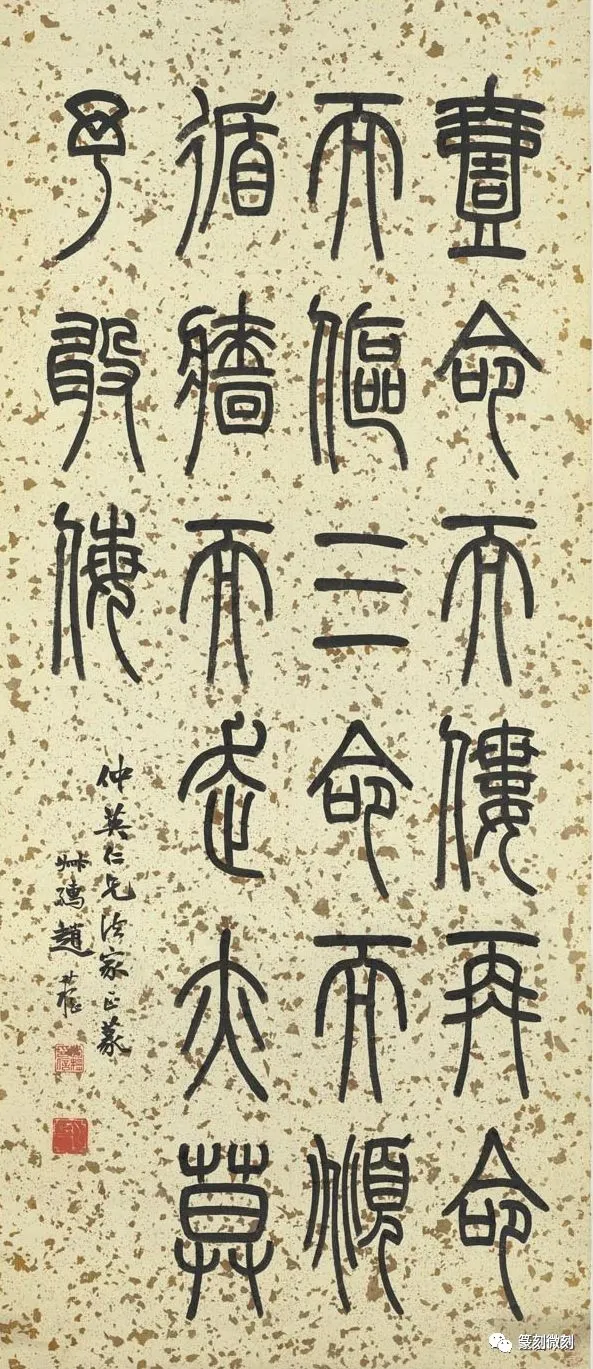 壹命而僂再命
而傴三命而頫
循牆而走亦莫
予敢侮
仲英仁兄法家正篆
叔孺趙時棡
篆刻微刻